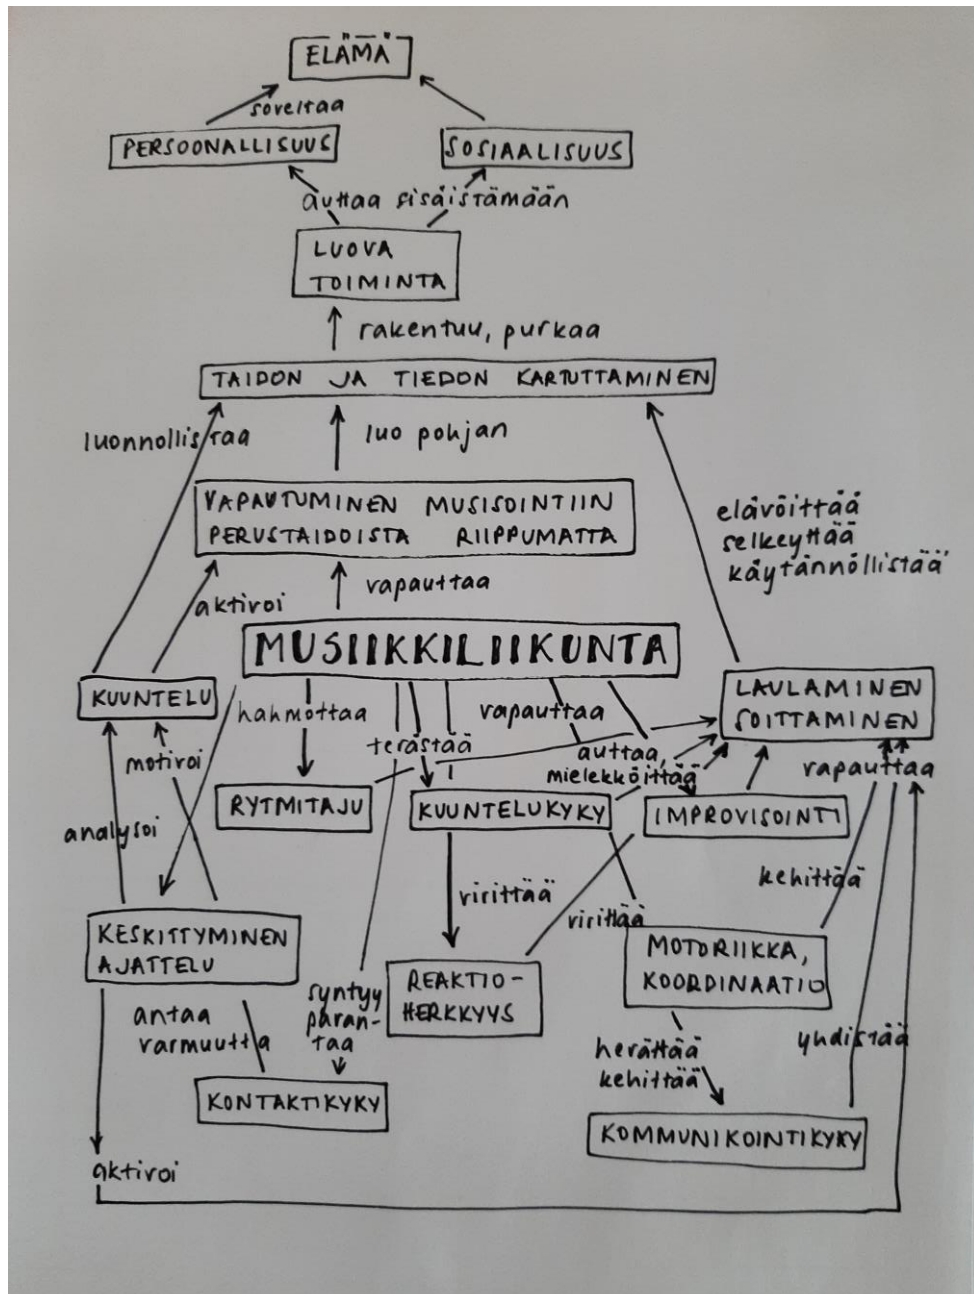 ELÄMÄ
soveltaa
PERSOONALLISUUS
SOSIAALISUUS
auttaa sisäistämään
LUOVA
TOIMINTA
rakentuu, purkaa
TAIDON JA TIEDON KARTUTTAMINEN
luonnollistaa
luo pohjan
VAPAUTUMINEN MUSISOINTIIN
PERUSTAIDOISTA RIIPPUMATTA
elävöittää
selkeyttää
käytännöllistää
aktivoi
vapauttaa
MUSIIKKILIIKUNTA
KUUNTELU
LAULAMINEN
SOITTAMINEN
hahmottaa
vapauttaa
terästää
auttaa,
mielekköittää
motivoi
vapauttaa
RYTMITAJU
KUUNTELUKYKY
IMPROVISOINTI
analysoi
kehittää
virittää
virittää
KESKITTYMINEN
AJATTELU
MOTORIIKKA,
KOORDINAATIO
REAKTIO-
HERKKYYS
syntyy
paran-
taa
antaa
varmuutta
yhdistää
herättää
kehittää
KONTAKTIKYKY
KOMMUNIKOINTIKYKY
aktivoi